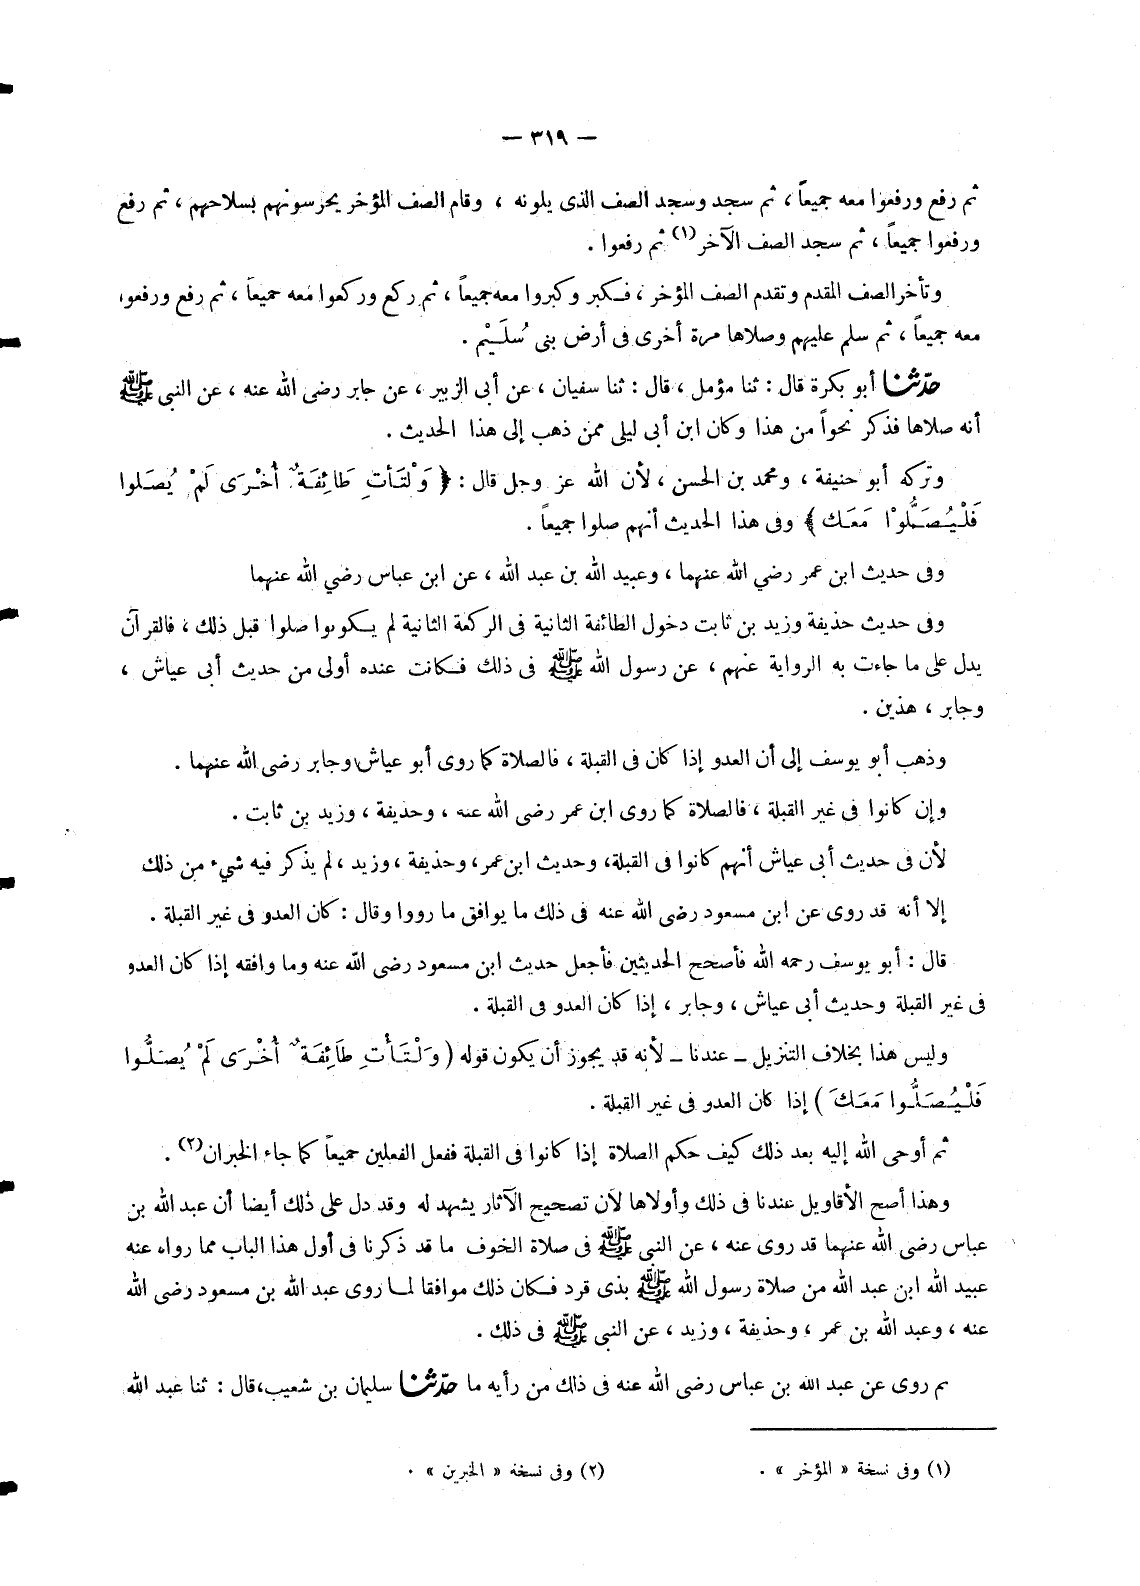 — ٣١٩ —
ثم رفع ورفعوا معه جميعاً ، ثم سجد وسجد الصف الذى يلونه ، وقام الصف المؤخر يحرسونهم بسلاحهم ، ثم رفع
ورفعوا جميعاً ، ثم سجد الصف الآخر(١) ثم رفعوا .
وتأخر الصف المقدم وتقدم الصف المؤخر ، فكبر وكبروا معه جميعاً ، ثم ركع وركعوا معه جميعاً ، ثم رفع ورفعوا
معه جميعاً ، ثم سلم عليهم وصلاها مرة أخرى فى أرض بنى سُلَيْم .
حدثنا أبو بكرة قال : ثنا مؤمل ، قال : ثنا سفيان ، عن أبى الزبير ، عن جابر رضى الله عنه ، عن النبى ﷺ
أنه صلاها فذكر نحواً من هذا وكان ابن أبى ليلى ممن ذهب إلى هذا الحديث .
وتركه أبو حنيفة ، ومحمد بن الحسن ، لأن الله عز وجل قال : ﴿ وَلْتَأتِ طَائِفَةٌ أُخْرَى لَمْ يُصَلوا
فَلْيُصَلُّوْا مَعَك ﴾ وفى هذا الحديث أنهم صلوا جميعاً .
وفى حديث ابن عمر رضي الله عنهما ، وعبيد الله بن عبد الله ، عن ابن عباس رضي الله عنهما
وفى حديث حذيفة وزيد بن ثابت دخول الطائفة الثانية فى الركعة الثانية لم يكونوا صلوا قبل ذلك ، فالقرآن
يدل على ما جاءت به الرواية عنهم ، عن رسول الله ﷺ فى ذلك فكانت عنده أولى من حديث أبى عياش ،
وجابر ، هذين .
وذهب أبو يوسف إلى أن العدو إذا كان فى القبلة ، فالصلاة كما روى أبو عياش وجابر رضى الله عنهما .
وإن كانوا فى غير القبلة ، فالصلاة كما روى ابن عمر رضى الله عنه ، وحذيفة ، وزيد بن ثابت .
لأن فى حديث أبى عياش أنهم كانوا فى القبلة، وحديث ابن عمر، وحذيفة ، وزيد ، لم يذكر فيه شيء من ذلك
إلا أنه قد روى عن ابن مسعود رضى الله عنه فى ذلك ما يوافق ما رووا وقال : كان العدو فى غير القبلة .
قال : أبو يوسف رحمه الله فأصحح الحديثين فأجعل حديث ابن مسعود رضى الله عنه وما وافقه إذا كان العدو
فى غير القبلة وحديث أبى عياش ، وجابر ، إذا كان العدو فى القبلة .
وليس هذا بخلاف التنزيل ـ عندنا ـ لأنه قد يجوز أن يكون قوله ( وَلْتَأْتِ طَائِفَةٌ أُخْرَى لَمْ يُصلُّوا
فَلْيُصَلُّوا مَعَكَ ) إذا كان العدو فى غير القبلة .
ثم أوحى الله إليه بعد ذلك كيف حكم الصلاة إذا كانوا فى القبلة ففعل الفعلين جميعاً كما جاء الخبران(٢) .
وهذا أصح الأقاويل عندنا فى ذلك وأولاها لأن تصحيح الآثار يشهد له وقد دل على ذلك أيضا أن عبد الله بن
عباس رضى الله عنهما قد روى عنه ، عن النبى ﷺ فى صلاة الخوف ما قد ذكرنا فى أول هذا الباب مما رواه عنه
عبيد الله ابن عبد الله من صلاة رسول الله ﷺ بذى قرد فكان ذلك موافقا لما روى عبد الله بن مسعود رضى الله
عنه ، وعبد الله بن عمر ، وحذيفة ، وزيد ، عن النبى ﷺ فى ذلك .
ثم روى عن عبد الله بن عباس رضى الله عنه فى ذلك من رأيه ما حدثنا سليمان بن شعيب،قال : ثنا عبد الله
(١) وفى نسخة « المؤخر » .
(٢) وفى نسخة « الخبرين » .